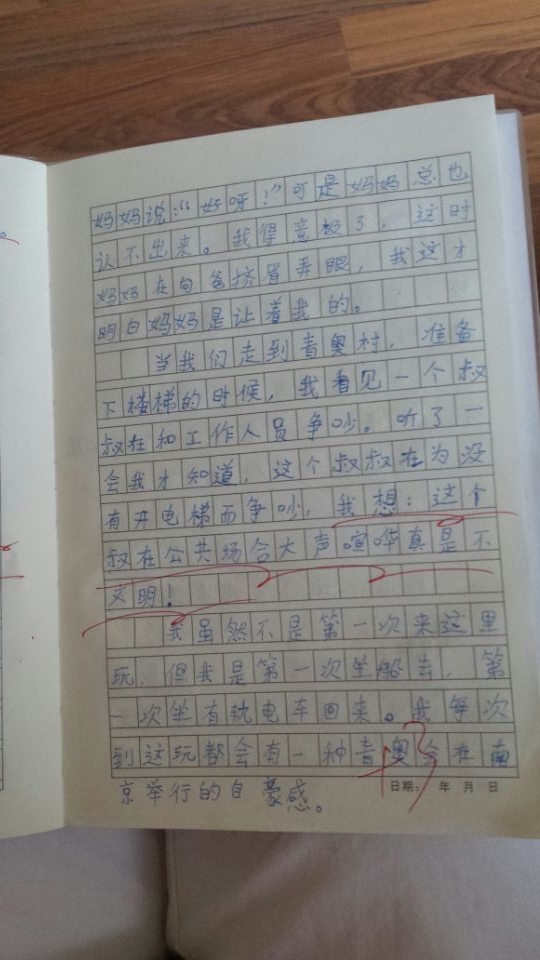 妈妈说:“好呀!”可是妈妈总也
认不出来。我得意极了,这时
妈妈在向爸挤眉弄眼,我这才
明白妈妈是让着我的。
当我们走到青奥村,准备
下楼梯的时候,我看见一个叔
叔在和工作人员争吵。听了一
会我才知道,这个叔叔在为没
有开电梯而争吵,我想:这个
叔在公共场合大声喧哗真是不
文明!
我虽然不是第一次来这里
玩,但我是第一次坐船去,第
一次坐有轨电车回来。我每次
到这玩都会有一种青奥会在南
京举行的自豪感。
日期: 年 月 日